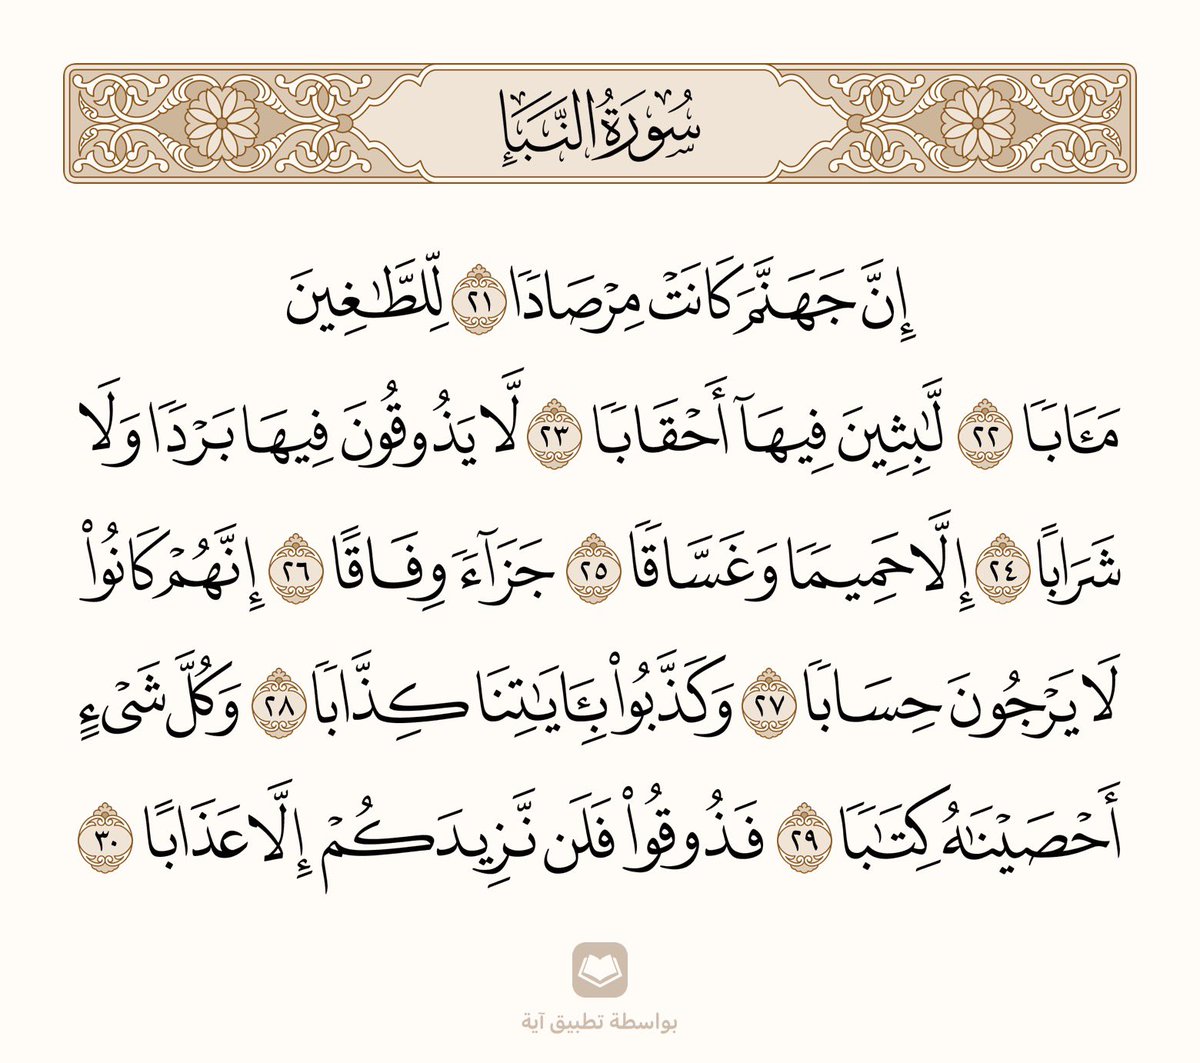 سُورَةُ النَّبَإِ
إِنَّ جَهَنَّمَ كَانَتۡ مِرۡصَادٗا ٢١ لِّلطَّٰغِينَ
مَـَٔابٗا ٢٢ لَّٰبِثِينَ فِيهَآ أَحۡقَابٗا ٢٣ لَّا يَذُوقُونَ فِيهَا بَرۡدٗا وَلَا
شَرَابًا ٢٤ إِلَّا حَمِيمٗا وَغَسَّاقٗا ٢٥ جَزَآءٗ وِفَاقًا ٢٦ إِنَّهُمۡ كَانُواْ
لَا يَرۡجُونَ حِسَابٗا ٢٧ وَكَذَّبُواْ بِـَٔايَٰتِنَا كِذَّابٗا ٢٨ وَكُلَّ شَيۡءٍ
أَحۡصَيۡنَٰهُ كِتَٰبٗا ٢٩ فَذُوقُواْ فَلَن نَّزِيدَكُمۡ إِلَّا عَذَابًا ٣٠
بواسطة تطبيق آية